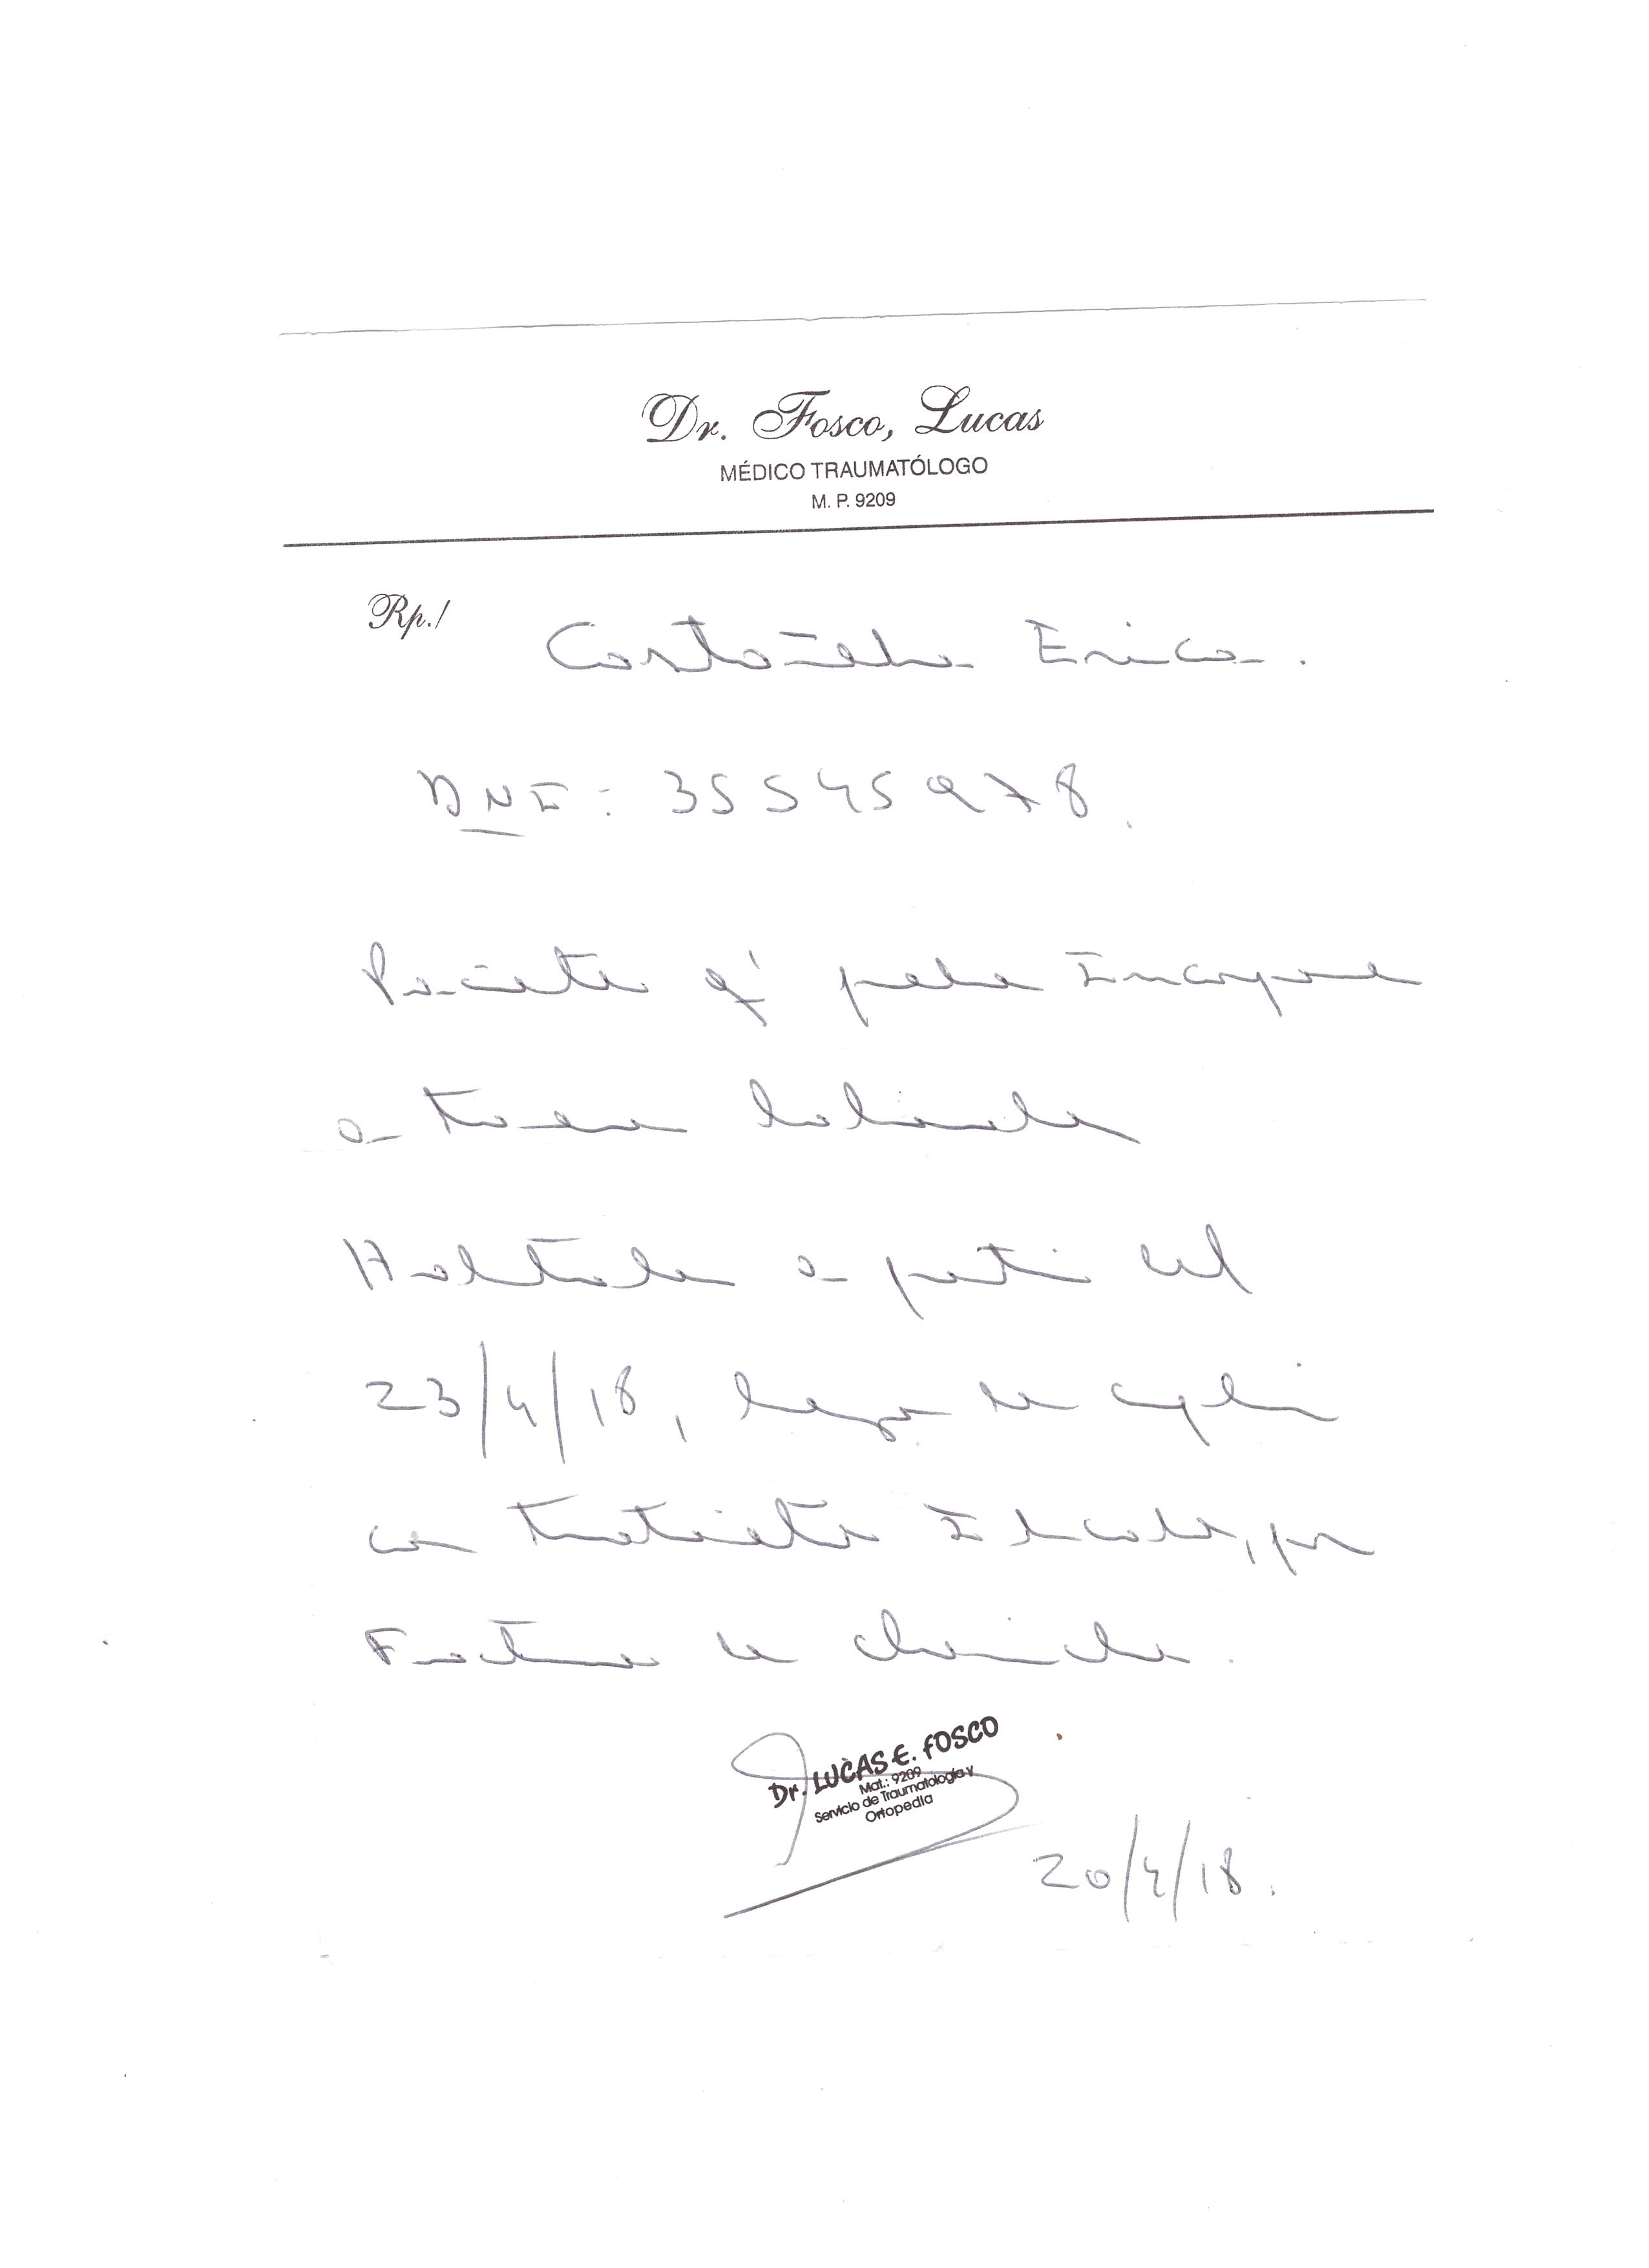 Dr. Fosco, Lucas
MÉDICO TRAUMATÓLOGO
M. P. 9209
Rp./
Castañeda Erica.
DNI: 35545978.
Paciente q' puede
a tareas
a partir del
23/4/18, luego de cumplir
con tratamiento indicado, por
Fractura de clavicula.
Dr. LUCAS E. FOSCO
Mat.: 9209
Servicio de Traumatología y
Ortopedia
20/4/18.